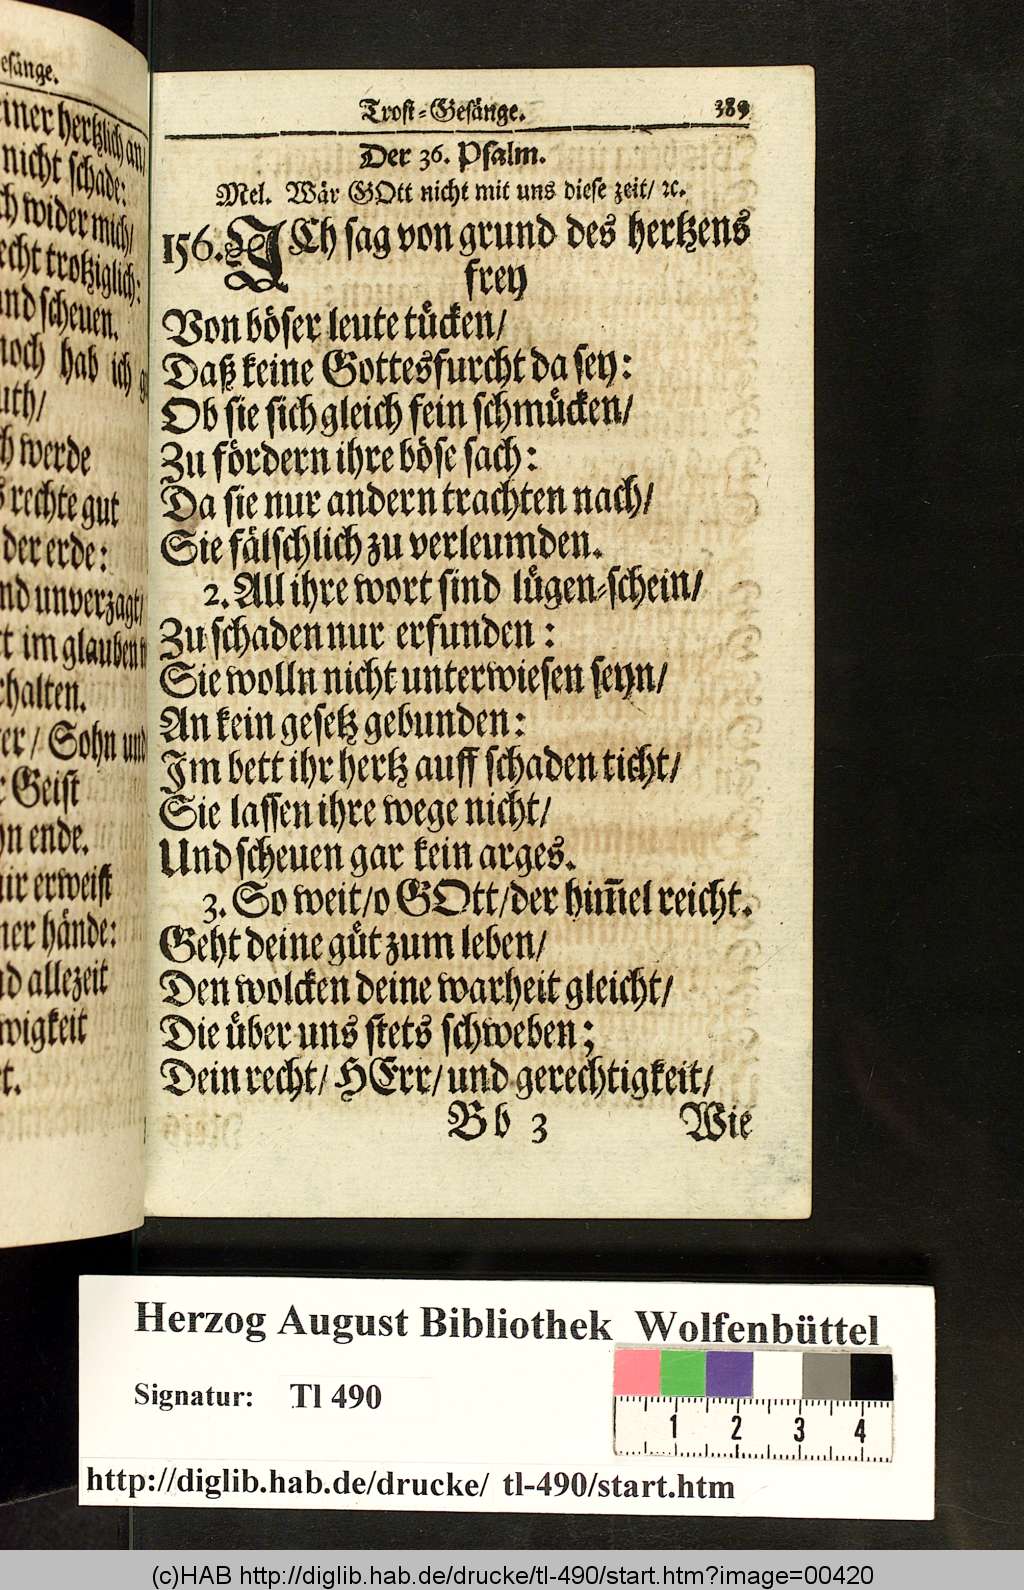 esänge.
einer hertzlich an/
nicht schade:
ch wider mich/
echt trotziglich:
und scheuen.
noch hab ich
uth/
ch werde
s rechte gut
der erde:
nd unverzagt/
t im glauben
rhalten.
er/ Sohn und
r Geist
hn ende.
nir erweist
ner hände:
nd allezeit
wigkeit
t.
Trost-Gesänge. 389
Der 36. Psalm.
Mel. Wär GOtt nicht mit uns diese zeit/ ꝛc.
156. ICh sag von grund des hertzens
frey
Von böser leute tücken/
Daß keine Gottesfurcht da sey:
Ob sie sich gleich fein schmücken/
Zu fördern ihre böse sach:
Da sie nur andern trachten nach/
Sie fälschlich zu verleumden.
2. All ihre wort sind lügen-schein/
Zu schaden nur erfunden:
Sie wolln nicht unterwiesen seyn/
An kein gesetz gebunden:
Im bett ihr hertz auff schaden ticht/
Sie lassen ihre wege nicht/
Und scheuen gar kein arges.
3. So weit/ o GOtt/ der him̅el reicht.
Geht deine güt zum leben/
Den wolcken deine warheit gleicht/
Die über uns stets schweben;
Dein recht/ HErr/ und gerechtigkeit/
Bb 3 Wie
Herzog August Bibliothek Wolfenbüttel
Signatur: Tl 490
1 2 3 4
http://diglib.hab.de/drucke/ tl-490/start.htm
(c)HAB http://diglib.hab.de/drucke/tl-490/start.htm?image=00420